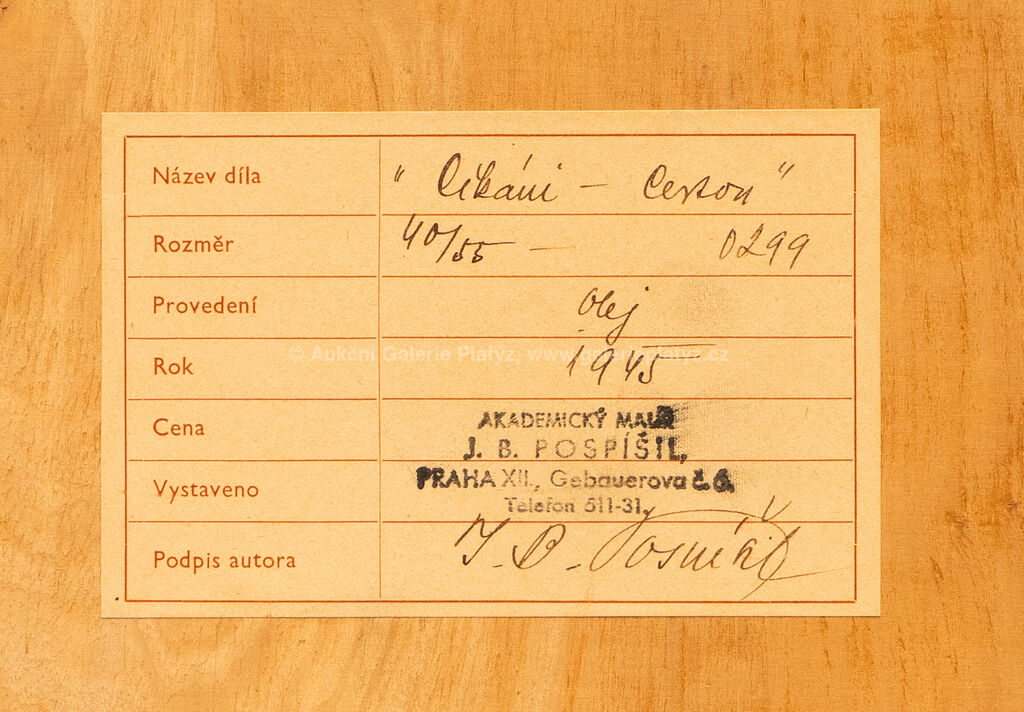 Název díla " Cikáni – Certon "
Rozměr 40/55 – 0299
Provedení Olej
© Aukční Galerie Platýz, www.galerieplatyz.cz
Rok 1945
Cena AKADEMICKÝ MALÍŘ
J. B. POSPÍŠIL,
PRAHA XII., Gebauerova č. 6.
Vystaveno
Telefon 511-31,
Podpis autora J. B. Pospíšil